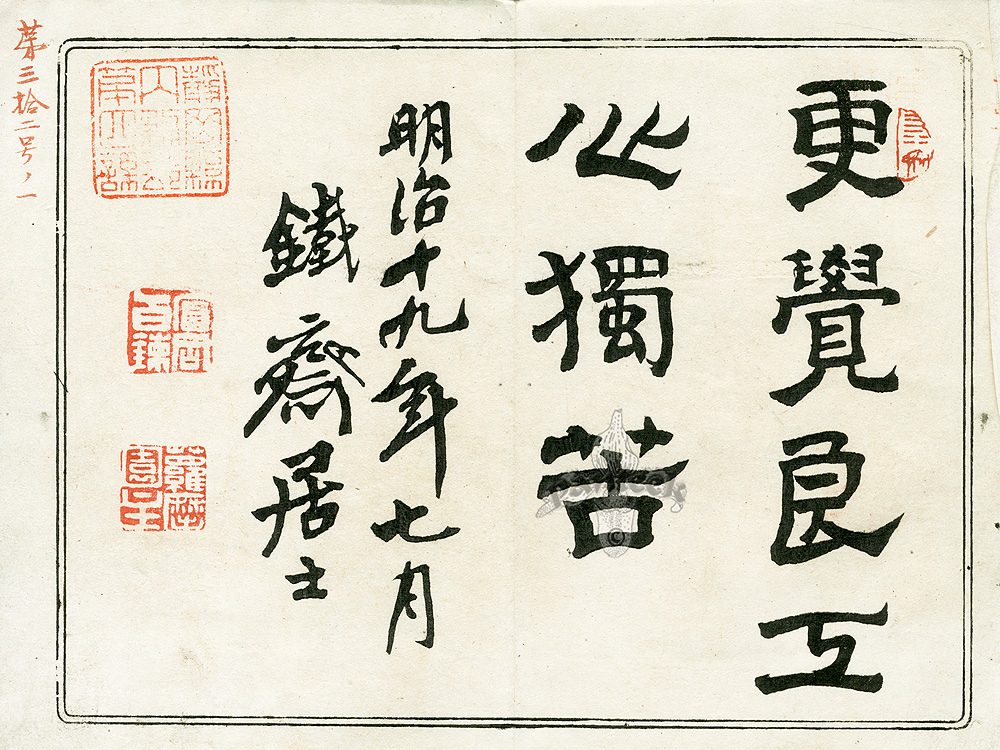 更覺良工
心獨苦
明治十九年七月
鐵齋居士
第三拾二号ノ一